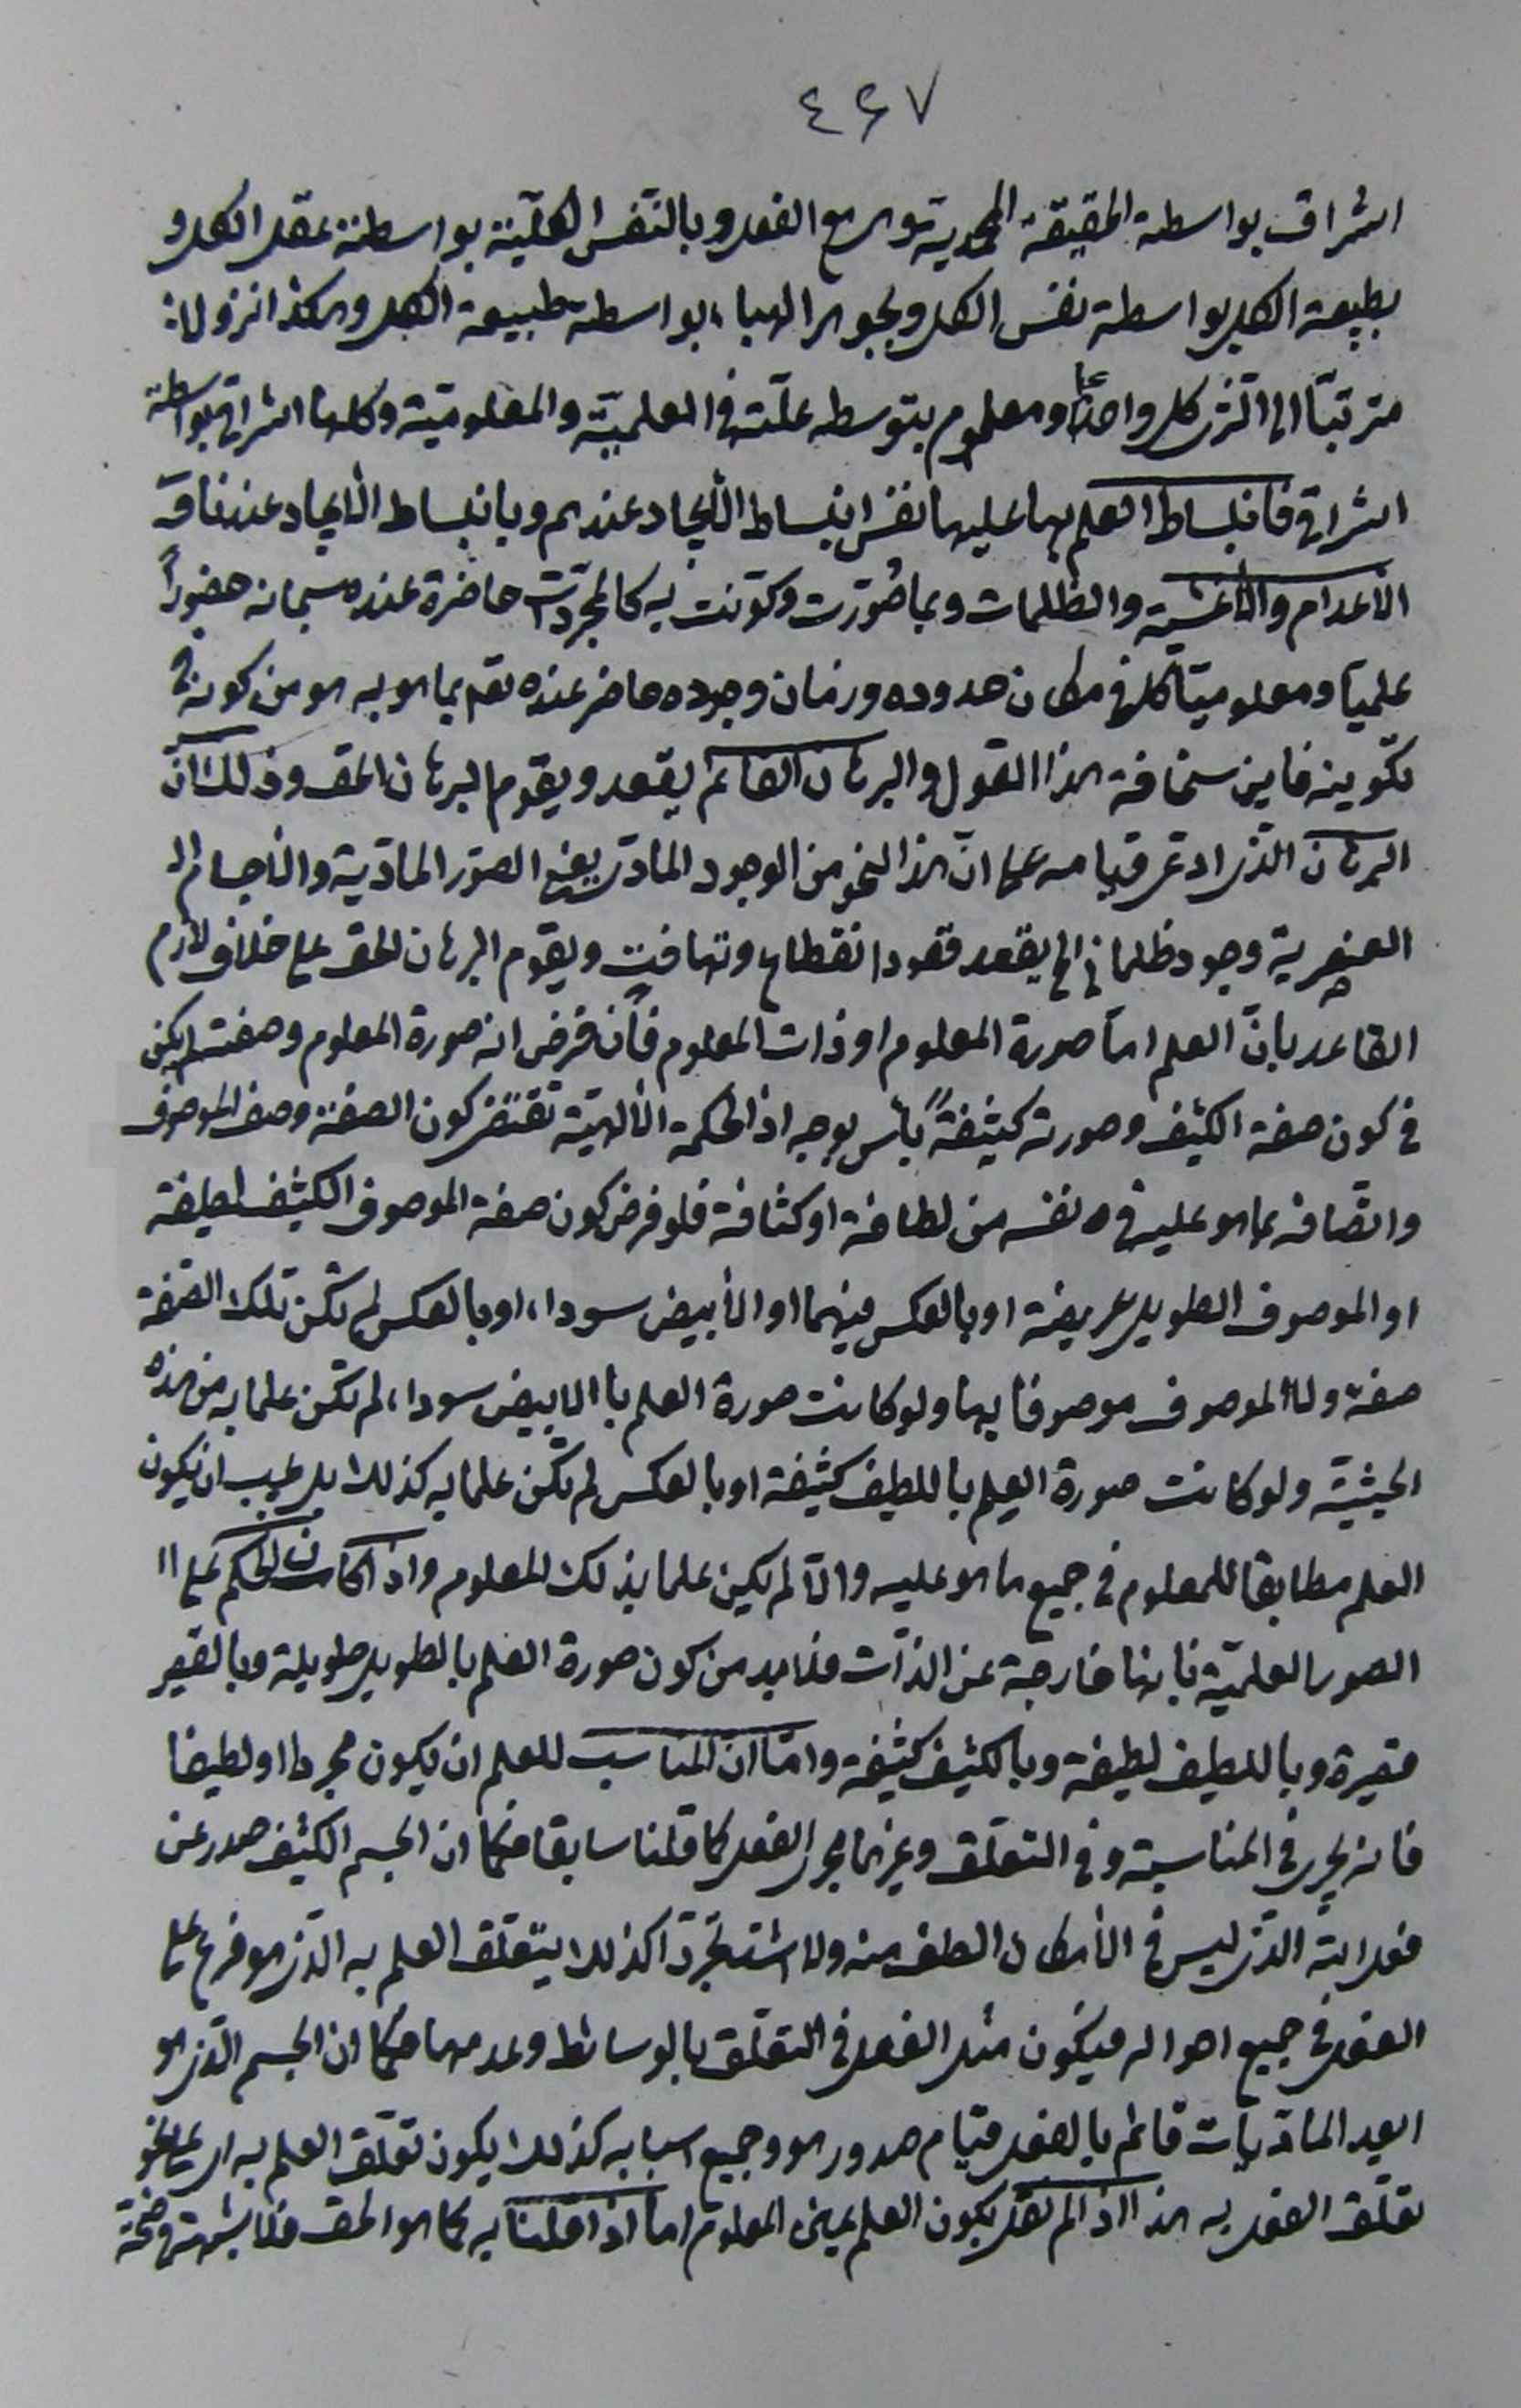 ٤٤٧
اشراق بواسطة الحقيقة المحمدية وهى مع الفعل وبالنفس الكلية بواسطة عقل الكل و
بطبيعة الكل بواسطة نفس الكل وبجوهر الهباء بواسطة طبيعة الكل وهكذا نزولا
مترتبا الى الثرى كل واحد ومعلوم بتوسط علته فى العلمية والمعلومية وكلها اشراق بواسطة
اشراق فانبساط العلم بها عليها نفس انبساط الأيجاد عندهم وبانبساط الأيجاد عندنا
الأعدام والأغشية والظلمات وبما صُوّرت وكوّنت به كالمجردات حاضرة عنده سبحانه حضوراً
علميا ومعلوميا كل فى مكان حدوده وزمان وجوده حاضر عنده تعم بما هو به هو من كونه فى
تكوينه فاين سخافة هذا القول والبرهان القائم يقعد ويقوم البرهان الحق وذلك انّ
البرهان الذى ادعى قيامه على انّ هذا النحو من الوجود المادى يعنى الصور المادّية والأجسام
العنصرية وجود ظلمانى الخ يقعد قعود انقطاع وتهافت ويقوم البرهان الحق على خلاف لازم
القاعد بانّ العلم امّا صورة المعلوم او ذات المعلوم فأن فرض انه صورة المعلوم وصفته لم يكن
فى كون صفة الكثيف وصورته كثيفةً بأس بوجه اذ الحكمة الألهيّة تقتضى كون الصفة وصف الموصوف
واتّصافه بما هو عليه فى نفسه من لطافة او كثافة فلو فرض كون صفة الموصوف الكثيف لطيفة
او الموصوف الطويل عريضة او بالعكس فيهما او الأبيض سوداء او بالعكس لم تكن تلك الصّفة
صفة ولا الموصوف موصوفا بها ولو كانت صورة العلم بالابيض سوداء لم تكن علما به من هذه
الحيثيّة ولو كانت صورة العلم باللطيف كثيفة او بالعكس لم تكن علما به كذلك بل يجب ان يكون
العلم مطابقا للمعلوم فى جميع ما هو عليه والّا لم يكن علما بذلك المعلوم واذا كان الحكم على
الصور العلميّة بانها خارجة عن الذات فلابد من كون صورة العلم بالطويل طويلة وبالقصير
قصيرة وباللطيف لطيفة وبالكثيف كثيفة وامّا انّ المناسب للعلم ان يكون مجردا او لطيفا
فانه يجرى فى المناسبة وفى التعلق وغيرهما مجرى الفعل كما قلنا سابقا فكما ان الجسم الكثيف صدر عن
فعل الله الذى ليس فى الأمكان الطف منه ولا اشد تجرّدا كذلك يتعلّق العلم به الذى هو فرع على
الفعل فى جميع احواله فيكون مثل الفعل فى التعلّق بالوسائط وعدمها فكما ان الجسم الذى هو
ابعد الماديات قائم بالفعل قيام صدور هو وجميع اسبابه كذلك يكون تعلّق العلم به اى على نحو
تعلّق الفعل به هذا اذا لم نقل بكون العلم عين المعلوم اما اذا قلنا به كما هو الحق فلا شبهة